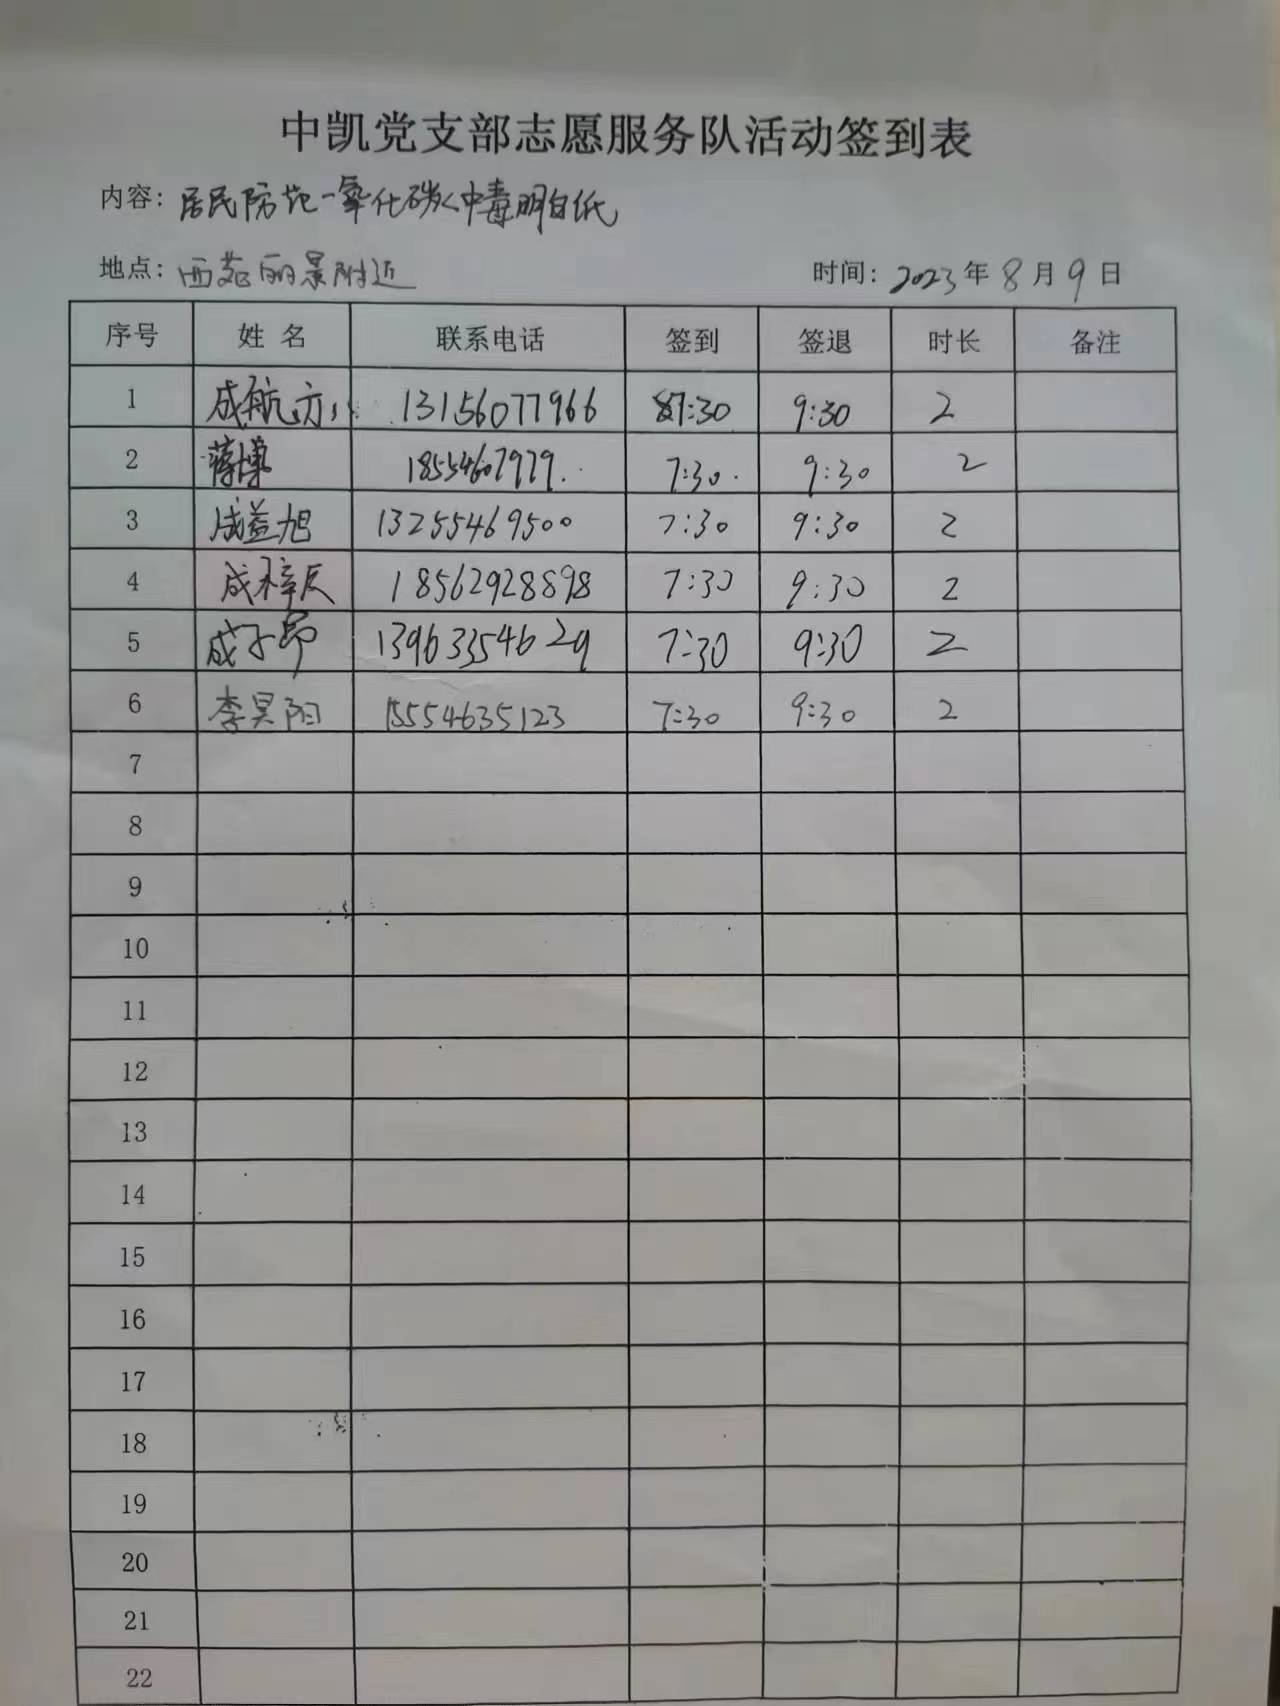 中凯党支部志愿服务队活动签到表
内容：居民防范一氧化碳中毒明白纸
地点：西苑丽景附近 时间：2023年8月9日
序号 姓名 联系电话 签到 签退 时长 备注
1 成航 13156077966 7:30 9:30 2
2 蒋博 18554607979 7:30 9:30 2
3 成益旭 13255469500 7:30 9:30 2
4 成梓辰 18562928898 7:30 9:30 2
5 成子昂 13963354629 7:30 9:30 2
6 李昊阳 15554635123 7:30 9:30 2
7
8
9
10
11
12
13
14
15
16
17
18
19
20
21
22